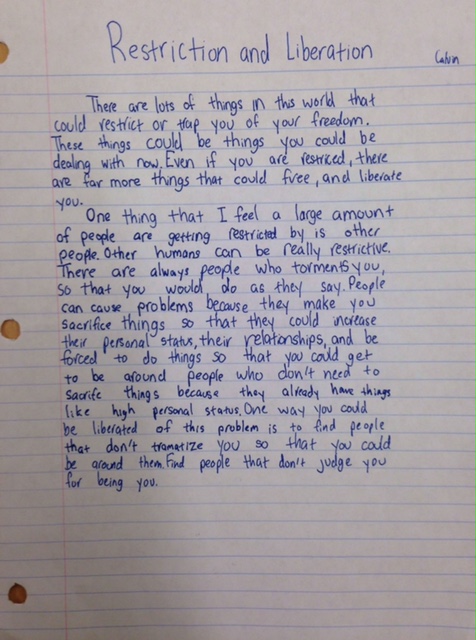 Restriction and Liberation
Calvin
There are lots of things in this world that
could restrict or trap you of your freedom.
These things could be things you could be
dealing with now. Even if you are restriced, there
are far more things that could free, and liberate
you.
One thing that I feel a large amount
of people are getting restricted by is other
people. Other humans can be really restrictive.
There are always people who torments you,
so that you would do as they say. People
can cause problems because they make you
sacrifice things so that they could increase
their personal status, their relationships, and be
forced to do things so that you could get
to be around people who don't need to
sacrife things because they already have things
like high personal status. One way you could
be liberated of this problem is to find people
that don't tramatize you so that you could
be around them. Find people that don't judge you
for being you.